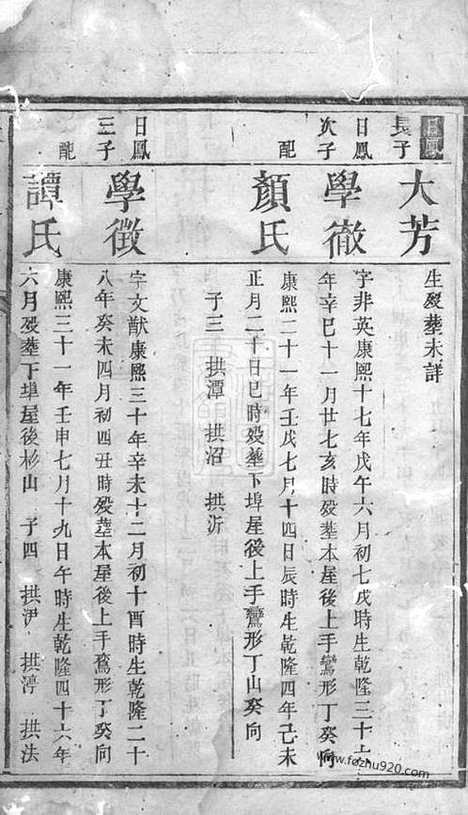 日鳳
長子
大芳
生殁葬未詳
日鳳
次子
學徹
字非英康熙十七年戊午六月初七戌時生乾隆三十六
年辛巳十一月廿七亥時殁葬本屋後上手鸞形丁癸向
配
顏氏
康熙二十一年壬戌七月十四日辰時生乾隆四年己未
正月二十日巳時殁葬下埠屋後上手鸞形丁山癸向
子三 拱潭 拱沼 拱沂
日鳳
三子
學徴
字文猷康熙三十年辛未十二月初十酉時生乾隆二十
八年癸未四月初四丑時殁葬本屋後上手鸞形丁癸向
配
譚氏
康熙三十一年壬申七月十九日午時生乾隆四十六年
六月殁葬下埠屋後杉山 子四 拱尹 拱渟 拱法
www.fozhu920.com